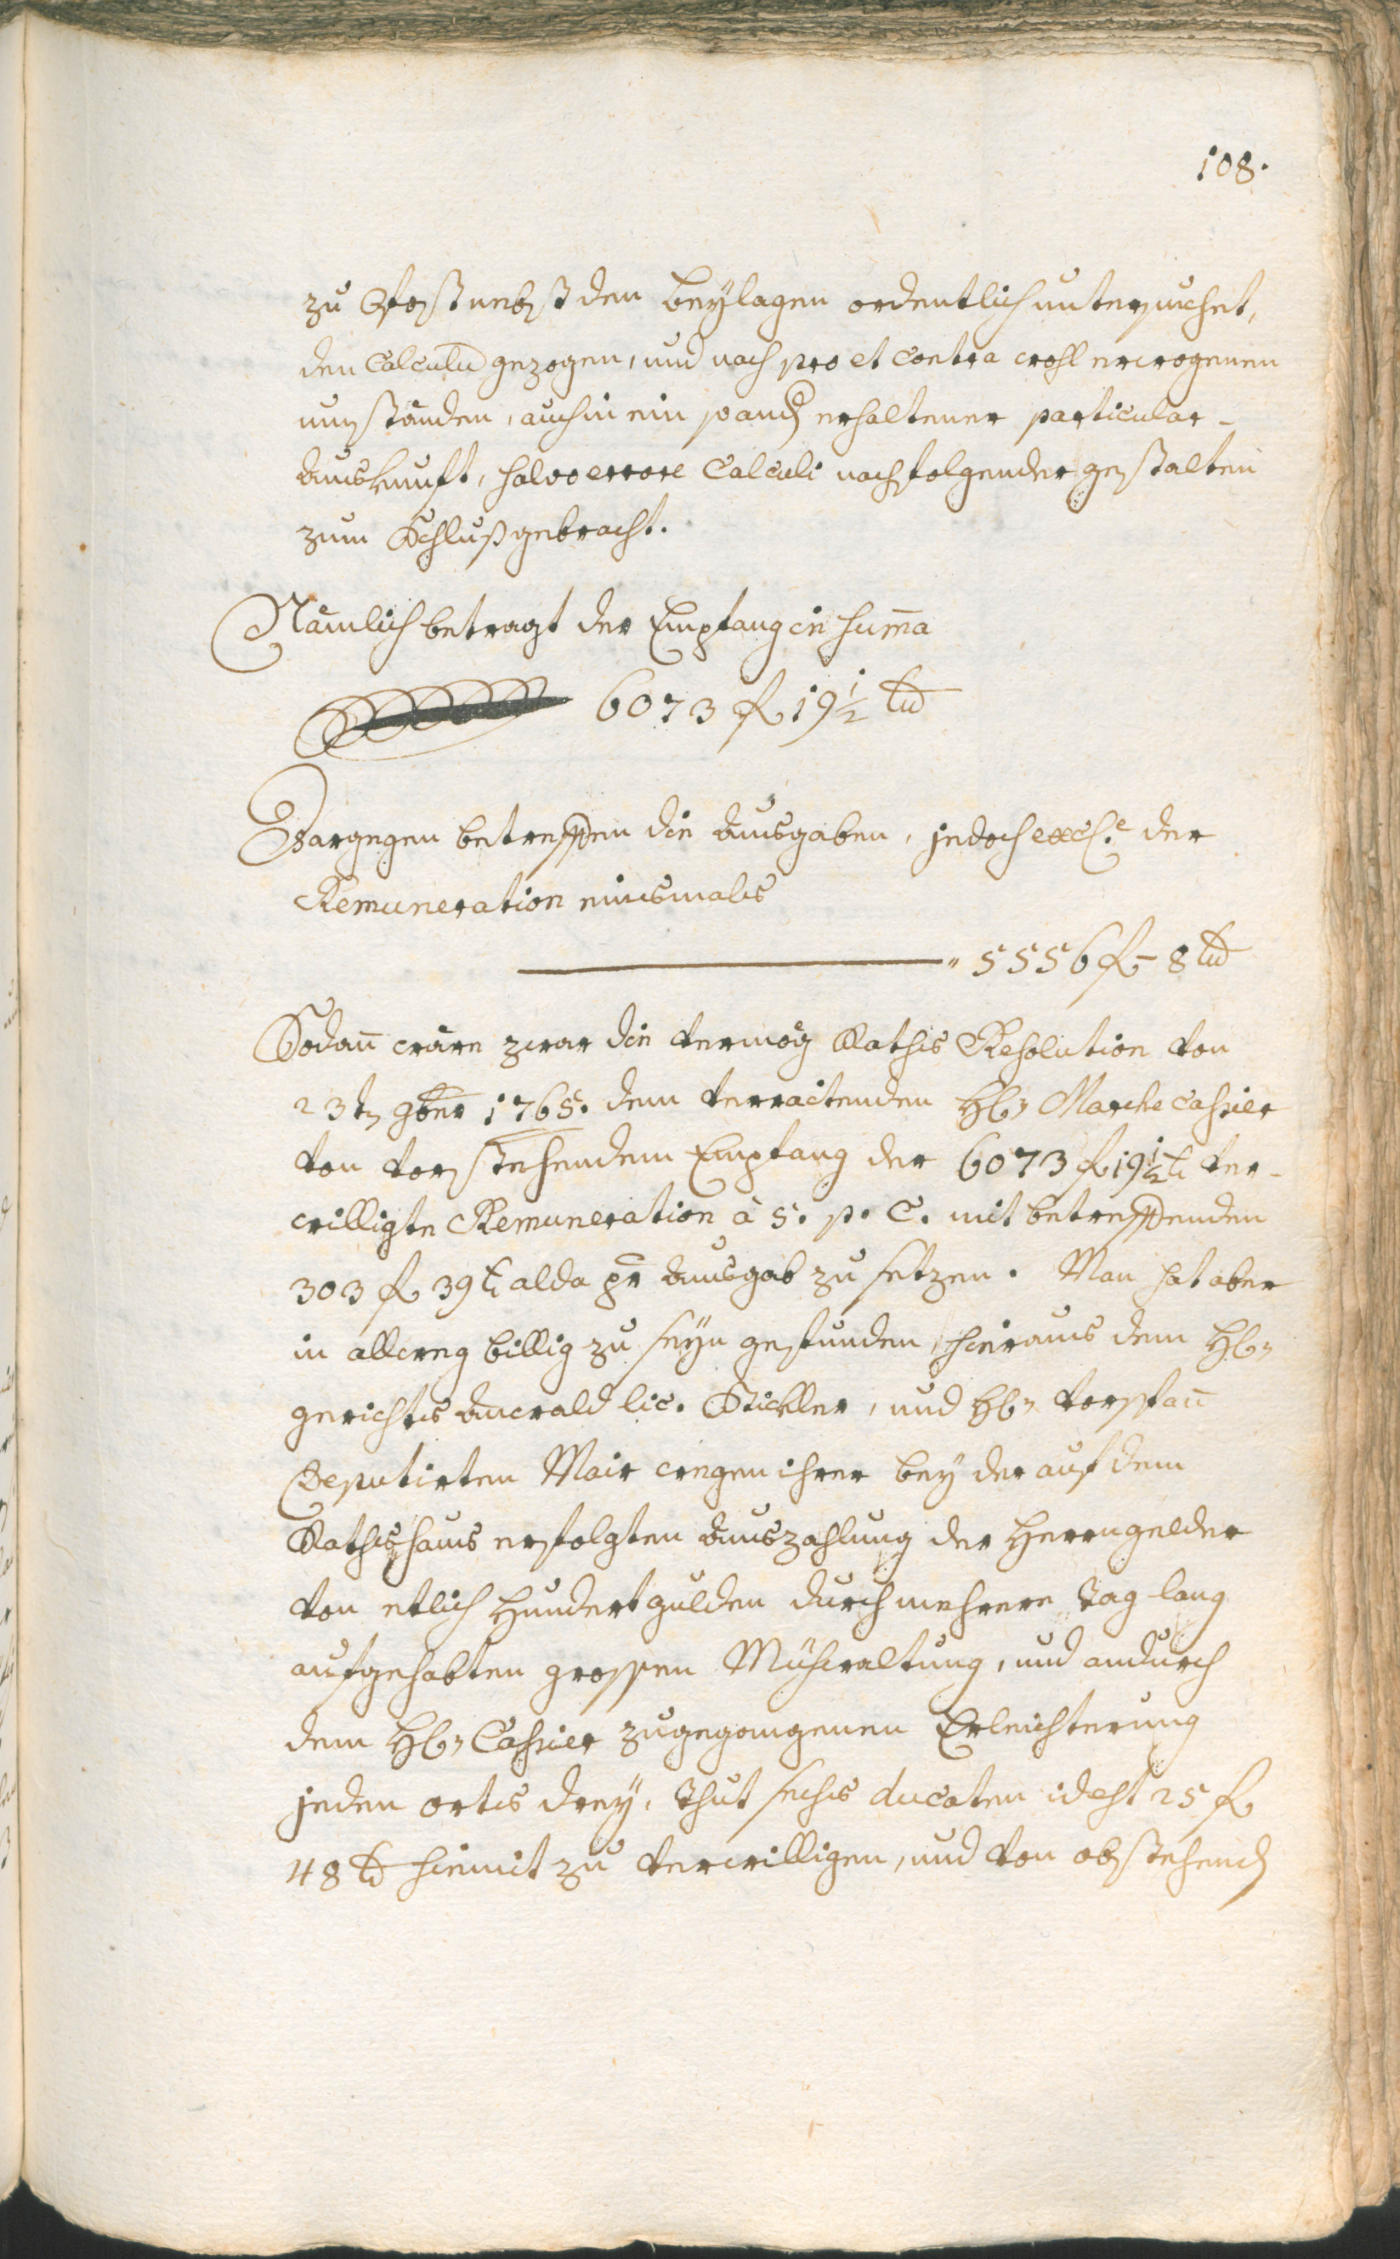 108.
zu Post nebst den beÿlagen ordentlich untersuchet,
den Calculū gezogen, und nach pro et contra wohl erwogenen
umständen, auch in ein so andȝ erhaltener particular-
auskunft, salvo errore Calculi nachfolgender gestalten
zum Schluß gebracht.
Nämlich betragt der Empfang in suma
6073 f 19 1/2 kr
Dargegen betreffen die ausgaben, jedoch excl.e der
Remuneration einsmals
" 5556 f - 8 kr
Sodañ wäre zwar die vermög Raths Resolution von
23tȝ 9ber 1765. dem verraitenden Hl. Marche Cassier
von vorstehendem Empfang der 6073 f 19 1/2 kr ver-
willigte Remuneration à 5. p. C. mit betreffenden
303 f 39 kr alda pr ausgab zu setzen. Man hat aber
in allweg billig zu seÿn gefunden, hieraus dem Hl.
gerichts anwald lic. Stickler, und Hl.
Deputirten Mair wegen ihrer beÿ der auf dem
Rathshaus erfolgten auszahlung der Herrngelder
von etlich hundert gulden durch mehrere Tag lang
aufgehabten grossen Mühwaltung, und andurch
dem Hl. Cassier zugegangenen Erleichterung
jeden orts dreÿ, thut sechs ducaten idest 25 f
48 kr hiemit zu verwilligen, und von obstehendȝ